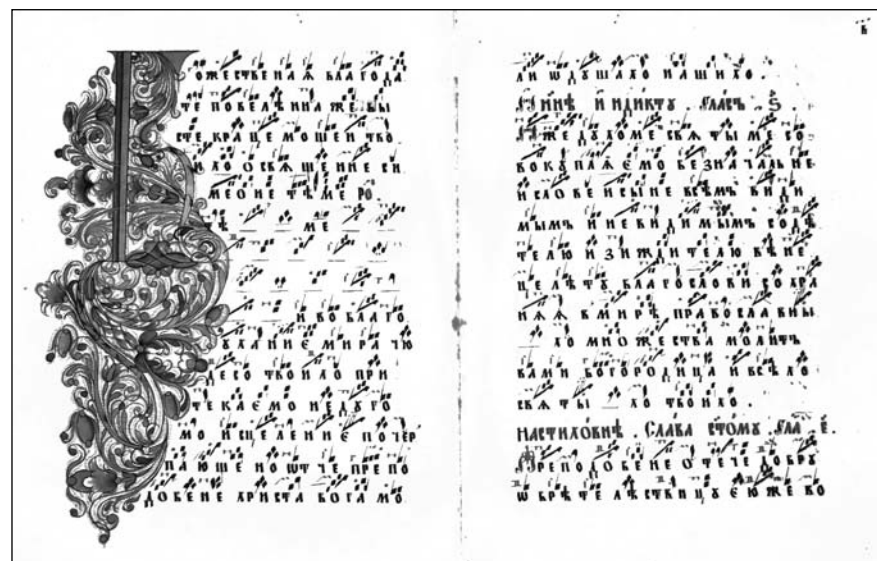 ожественаѧ благода
те же бы
сте краще мощеи тво
ихо освѧщение си
меоне
ме
и во благо
ѹханиѥ мира чю
десо твоихо при
текаѥмо недуго
мо исцелениѥ почер
пающе но ѿтче препо
добене христа бога мо
в҃
ли ѡ дꙋшахо нашихо.
индиктꙋ. гласъ. ѕ҃.
Иже дꙋхоме свѧтыме со
вокꙋплѧѥмо безначальне
и слове и сыне всѣмъ види
мымъ и невидимымъ содѣ
телю и зиждителю вѣне
це лѣтꙋ благослови сохра
нѧѧ в мирѣ православны
хо множества молитъ
вами богородица и всѣхо
свѧты хо твоихо.
На стиховнѣ. слава гла е҃.
Преподобене отече добрꙋ
ѡбрѣте лѣствицꙋ ѥюже во